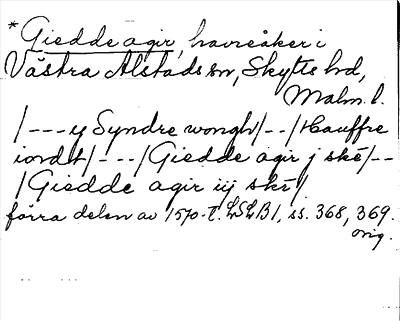 *Giedde agir, havreåker i
Västra Alstads sn, Skytts hd,
Malm. l.
/---ij Syndre wongh/--/Hauffre
iordt/---/Giedde agir j skè/--
/Giedde agir iij skè/
förra delen av 1570-t. LSLB1, ss. 368, 369.
orig.